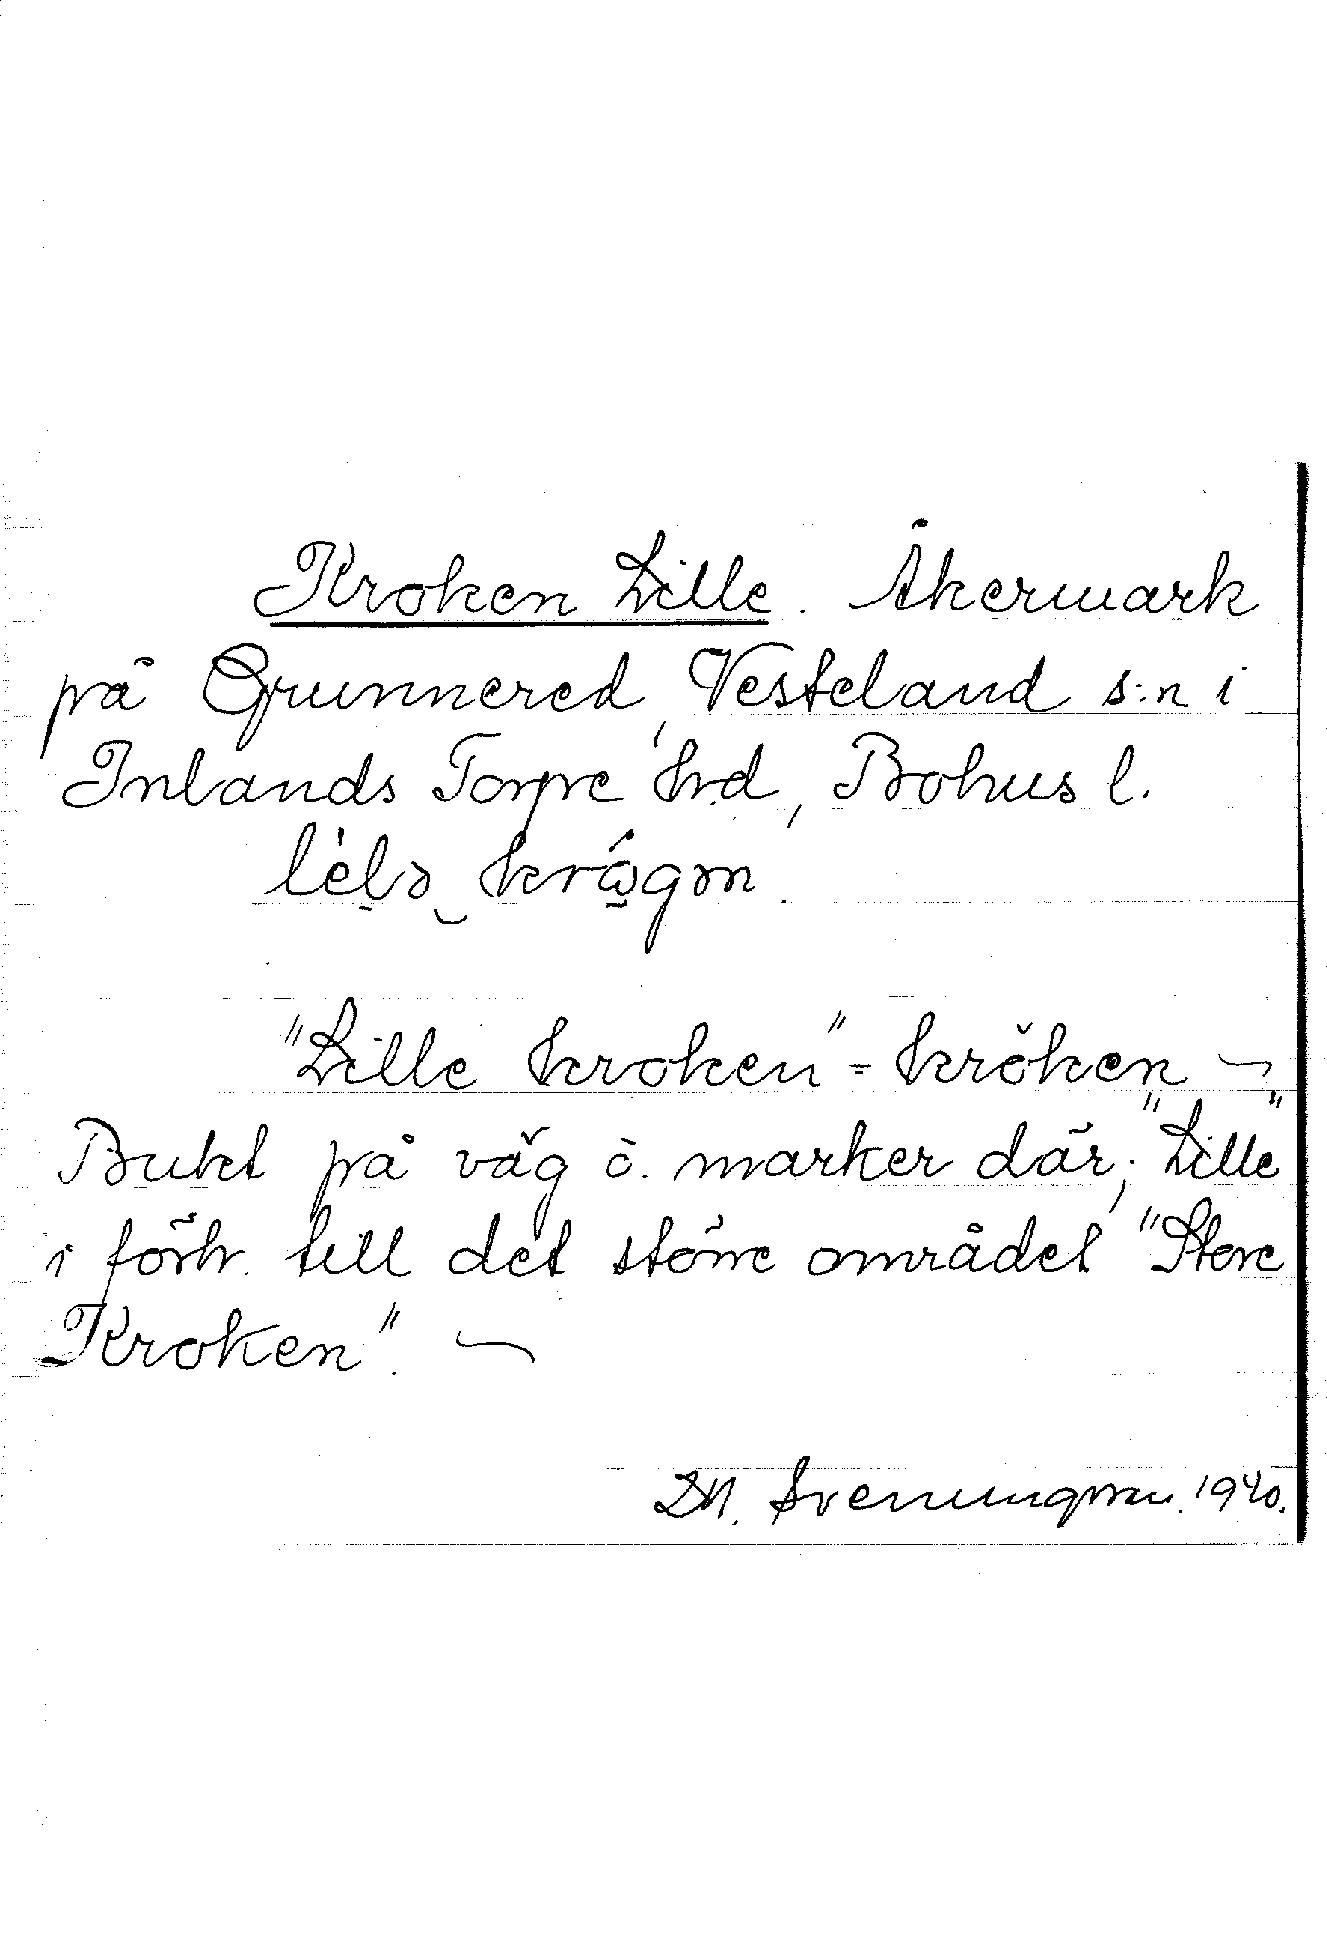 Kroken Lille. Åkermark
på Grunnered, Vesteland s:n i
Inlands Torpe hrd, Bohus l.
"Lille kroken" = kröken –
Bukt på väg o. marker där; "Lille"
i förh. till det större området "Store
Kroken". –
Svenungson. 1940.